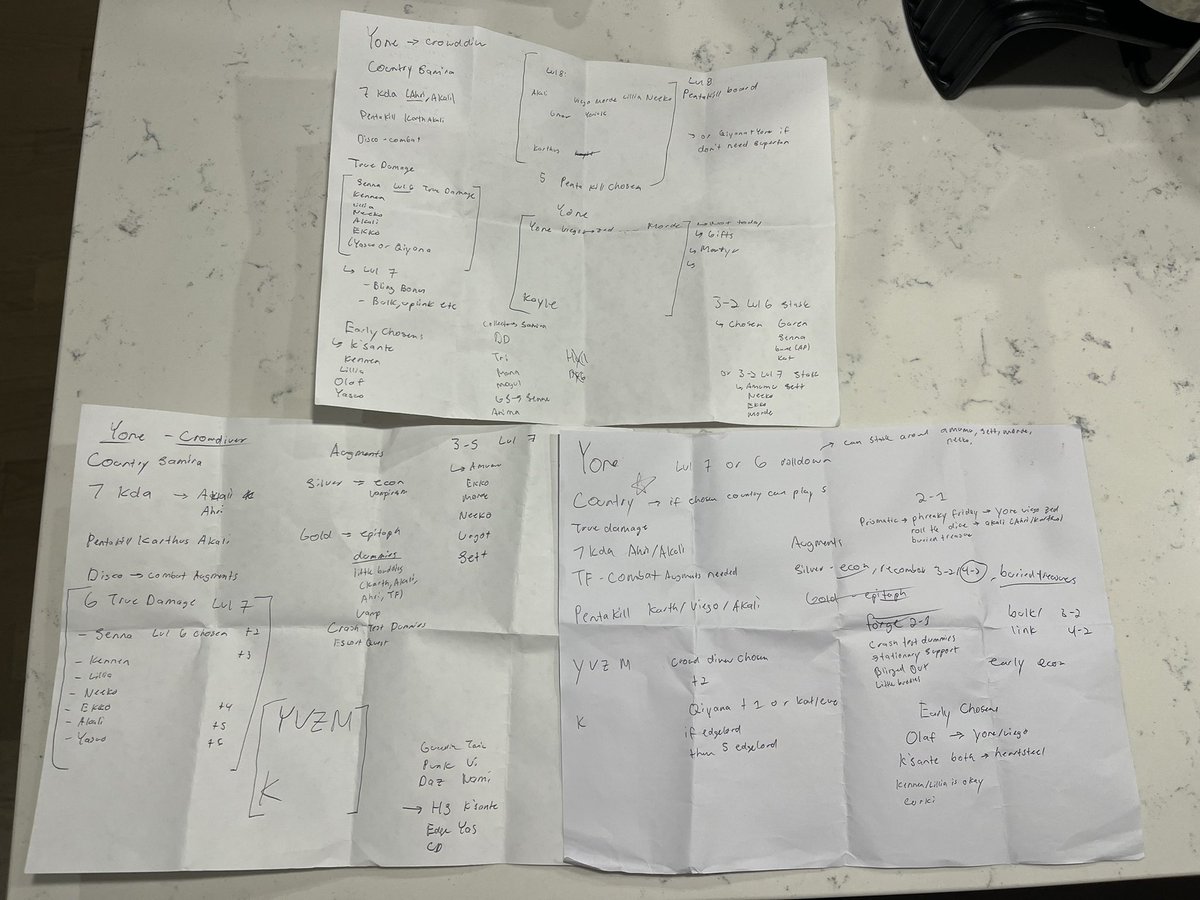 Yone → crowddiv
Country Samira
7 Kda (Ahri, Akali)
Pentakill Karth Akali
Disco → combat
True Damage
Senna Lvl 6 True Damage
Kennen
Lillia
Neeko
Akali
EKKO
(Yasuo or Qiyana
↳ Lvl 7
- Bling Bonus
- Bulk, uplink etc
Early Chosens
↳ K'sante
Kennen
Lillia
Olaf
Yasuo
Lvl 8:
Akali Viego Morde Lillia Neeko
Gnar Yorick
Karthus
5 Penta Kill Chosen
Lvl 8
Pentakill board
→ or Qiyana + Yone if
don't need superfan
Yone
Yone Viego Zed ..... Morde
Kayle
↳ Gifts
↳ Martyr
↳
Collectors Samira
DD
Tri
Mana
Mogul
GS → Senna
Anima
3-2 Lvl 6 Stask
↳ Chosen Garen
Senna
(AP)
Kat
or 3-2 Lvl 7 Stask
↳ Amumu Sett
Neeko
Ekko
Morde
Yone - Crowdiver
Country Samira
7 Kda → Akali
Ahri
Pentakill Karthus Akali
Disco → combat Augments
6 True Damage Lvl 7
- Senna Lvl 6 chosen +2
- Kennen +3
- Lillia
- Neeko
- Ekko +4
- Akali +5
- Yasuo +6
YVZM
K
Augments
Silver → econ
Gold → epitaph
dummies
little buddies
(Karth, Akali,
Ahri, TF)
Vamp
Crash Test Dummies
Escort Quest
3-5 Lvl 7
↳ Amumu
EKKO
Morde
Neeko
Urgot
Sett
Punk Vi
Daz Nami
→ H3 K'sante
Edge Yas
CD
Yone Lvl 7 or 6 rolldown
→ can stask around amumu, sett, morde,
neeko,
Country → if chosen country can play 5
True damage
7 Kda Ahri/Akali
TF - Combat Augments needed
Pentakill Karth/Viego/Akali
YVZ M Crowd diver Chosen
+2
K Qiyana +1 or kat/
if edgelord
then 5 edgelord
2-1
Prismatic → phreaky friday → Yone viego Zed
roll the dice → akali (Ahri/Karthus)
buried treasure
Augments
Silver - econ, recombob 3-2/4-2, buried treasures
Gold - epitaph
forge 2-1
Crash test dummies
Stationary Support
Blinged Out
Little buddies
bulk/ 3-2
link 4-2
early econ
Early Chosens
Olaf → Yone/Viego
K'sante both → heartsteel
Kennen/Lillia is okay
Corki